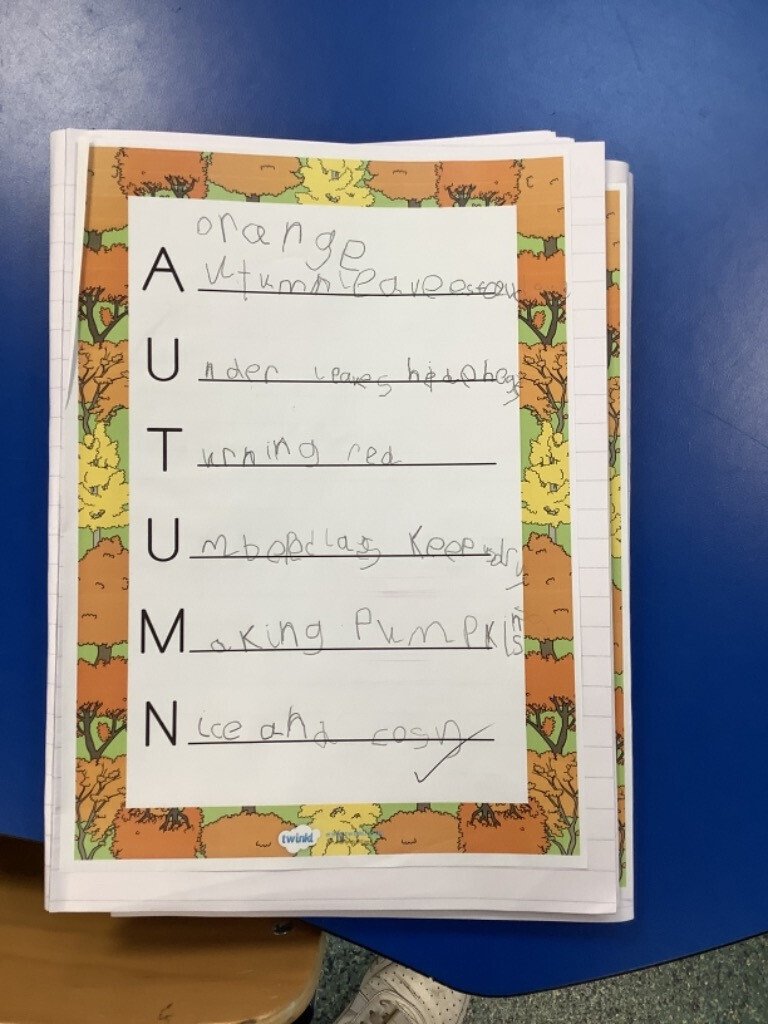 orange
Autumn leaves
Under leaves hedgehogs
Turning red
Umberellas Keeps dry
Making PumPkins
Nice and cosy
twinkl